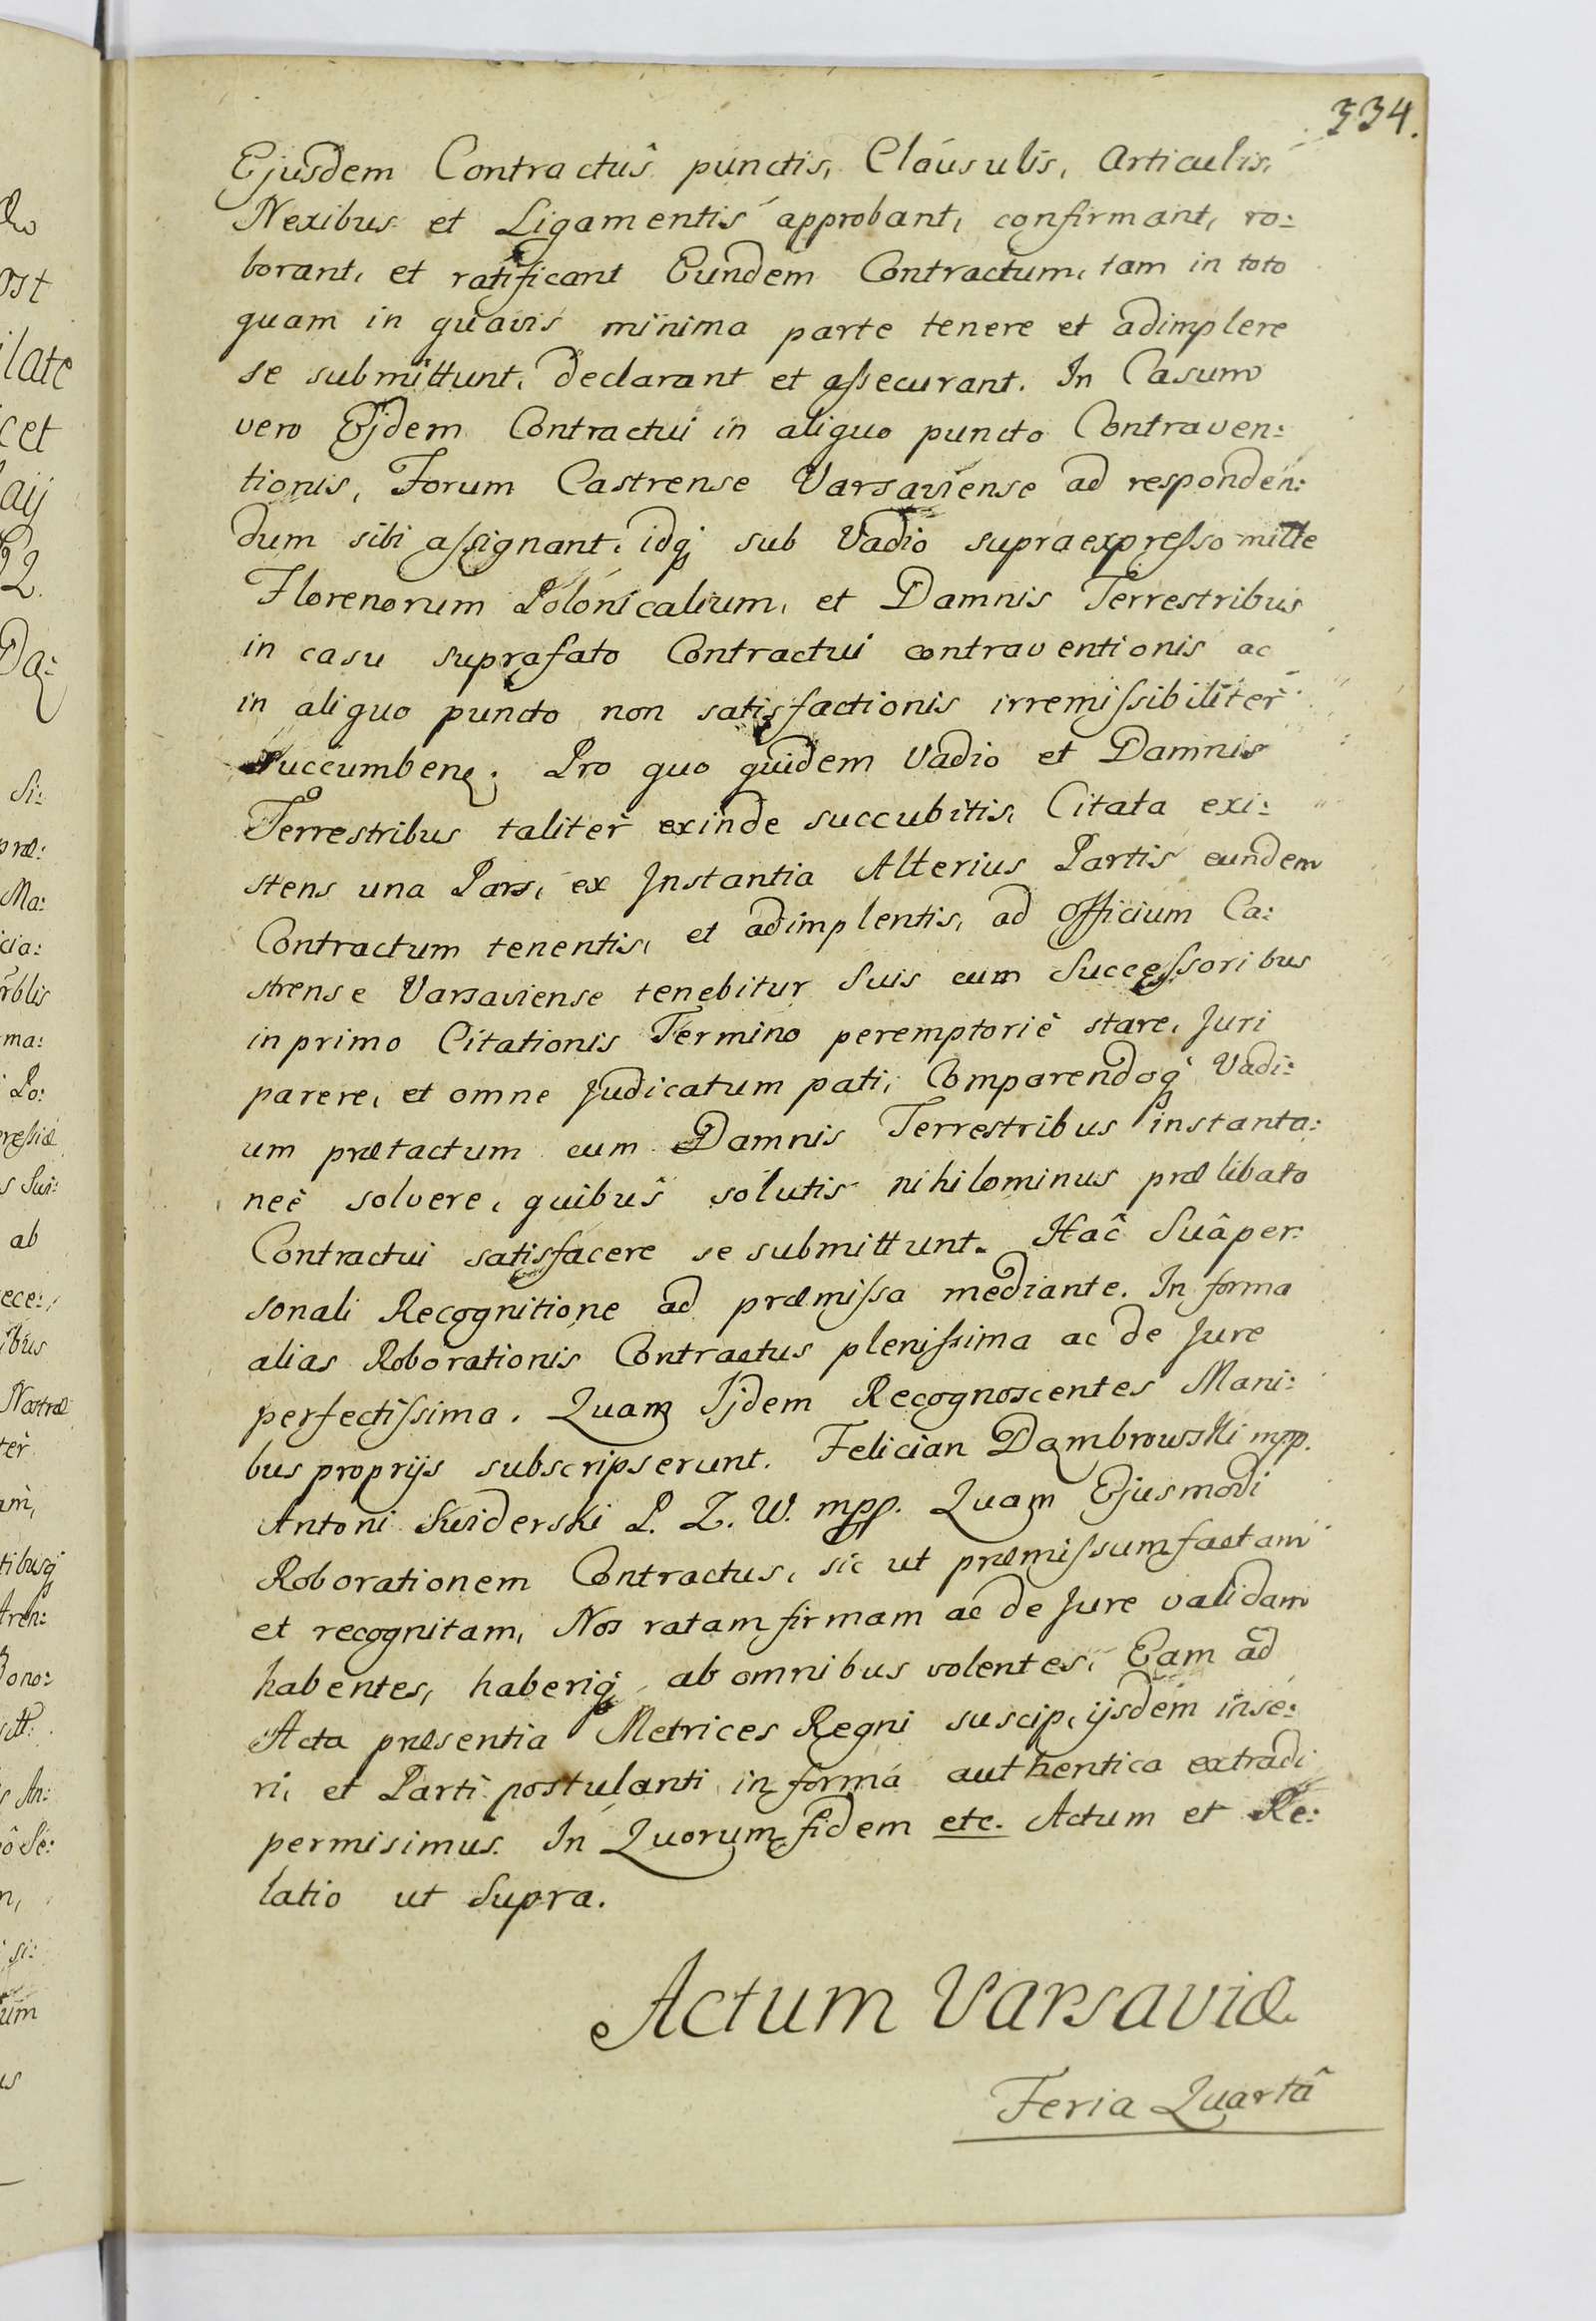 334.
Ejusdem Contractûs punctis, Clausulis, Articulis,
Nexibus et Ligamentis approbant, confirmant, ro:
borant, et ratificant Eundem Contractum, tam in toto
quam in quavis minima parte tenere et adimplere
se submittunt, declarant et aſsecurant. In Casum
vero Ejdem Contractui in aliquo puncto Contraven:
tionis, Forum Castrense Varsaviense ad responden:
dum sibi aſsignant, idq; sub Vadio supraexpreſso mille
Florenorum Polonicalium, et Damnis Terrestribus
in casu suprafato Contractui contraventionis ac
in aliquo puncto non satisfactionis irremiſsibiliter
succumben. Pro quo quidem Vadio et Damnis
Terrestribus taliter exinde succubitis, Citata exi:
stens una Pars, ex Instantia Alterius Partis eundem
Contractum tenentis, et adimplentis, ad Officium Ca:
strense Varsaviense tenebitur Suis cum Succeſsoribus
in primo Citationis Termino peremptoriè stare, Juri
parere, et omne Judicatum pati, Comparendoq; Vadi:
um prætactum cum Damnis Terrestribus instanta:
neè solvere, quibus solutis nihilominus prælibato
Contractui satisfacere se submittunt. Hac Suâ per:
sonali Recognitione ad præmiſsa mediante. In forma
alias Roborationis Contractus pleniſsima ac de Jure
perfectiſsima. Quam Ijdem Recognoscentes Mani:
bus proprijs subscripserunt. Felician Dąmbrowski mpp.
Antoni Swiderski P. Z. W. mpp. Quam Ejusmodi
Roborationem Contractus, sic ut præmiſsum factam
et recognitam, Nos ratam firmam ac de Jure validam
habentes, haberiq; ab omnibus volentes, Eam ad
Acta præsentia Metrices Regni suscipi, ijsdem inse:
ri, et Parti postulanti in forma authentica extradi
permisimus. In Quorum fidem etc. Actum et Re:
latio ut Supra.
Actum Varsaviæ
Feria Quartâ